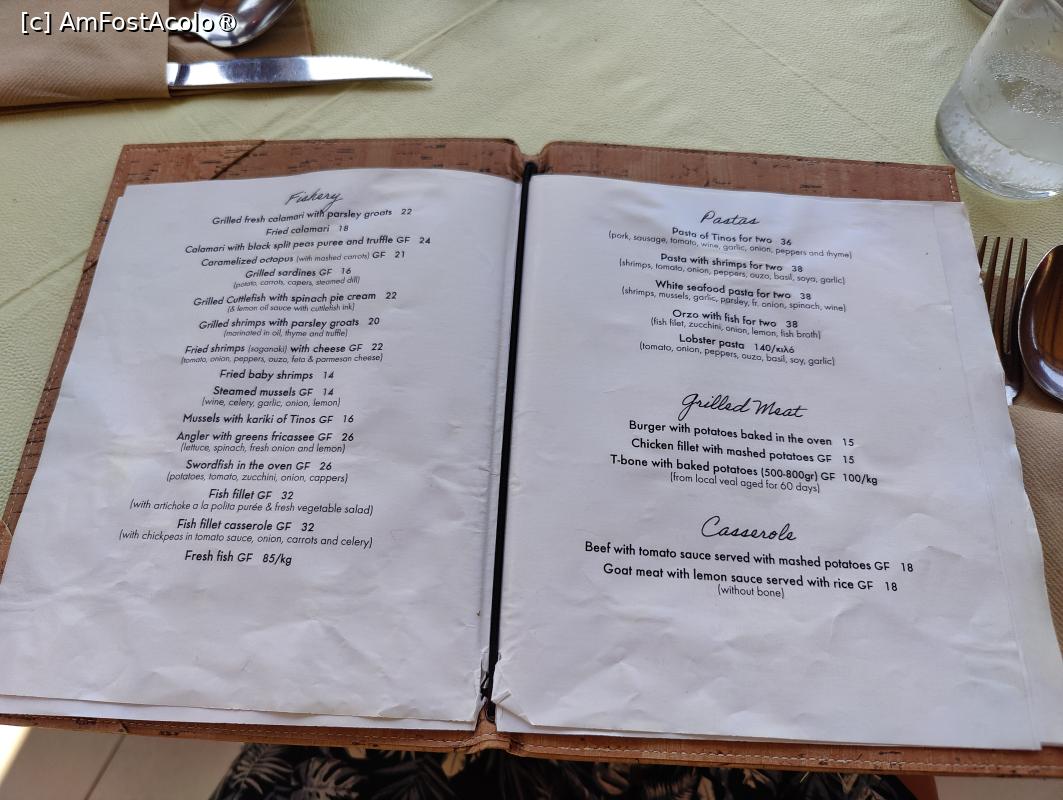 [c] AmFostAcolo®
Fishery
Grilled fresh calamari with parsley groats 22
Fried calamari 18
Calamari with black split peas puree and truffle GF 24
Caramelized octopus (with mashed carrots) GF 21
Grilled sardines GF 16
(potato, carrots, capers, steamed dill)
Grilled Cuttlefish with spinach pie cream 22
(& lemon oil sauce with cuttlefish ink)
Grilled shrimps with parsley groats 20
(marinated in oil, thyme and truffle)
Fried shrimps (saganaki) with cheese GF 22
(tomato, onion, peppers, ouzo, feta & parmesan cheese)
Fried baby shrimps 14
Steamed mussels GF 14
(wine, celery, garlic, onion, lemon)
Mussels with kariki of Tinos GF 16
Angler with greens fricassee GF 26
(lettuce, spinach, fresh onion and lemon)
Swordfish in the oven GF 26
(potatoes, tomato, zucchini, onion, cappers)
Fish fillet GF 32
(with artichoke a la polita purée & fresh vegetable salad)
Fish fillet casserole GF 32
(with chickpeas in tomato sauce, onion, carrots and celery)
Fresh fish GF 85/kg
Pastas
Pasta of Tinos for two 36
(pork, sausage, tomato, wine, garlic, onion, peppers and thyme)
Pasta with shrimps for two 38
(shrimps, tomato, onion, peppers, ouzo, basil, soya, garlic)
White seafood pasta for two 38
(shrimps, mussels, garlic, parsley, fr. onion, spinach, wine)
Orzo with fish for two 38
(fish filet, zucchini, onion, lemon, fish broth)
Lobster pasta 140/κιλό
(tomato, onion, peppers, ouzo, basil, soy, garlic)
Grilled Meat
Burger with potatoes baked in the oven 15
Chicken fillet with mashed potatoes GF 15
T-bone with baked potatoes (500-800gr) GF 100/kg
(from local veal aged for 60 days)
Casserole
Beef with tomato sauce served with mashed potatoes GF 18
Goat meat with lemon sauce served with rice GF 18
(without bone)